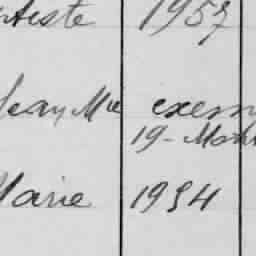 ptiste 1957
Jean Mie exem
19 - Mob
Marie 1934